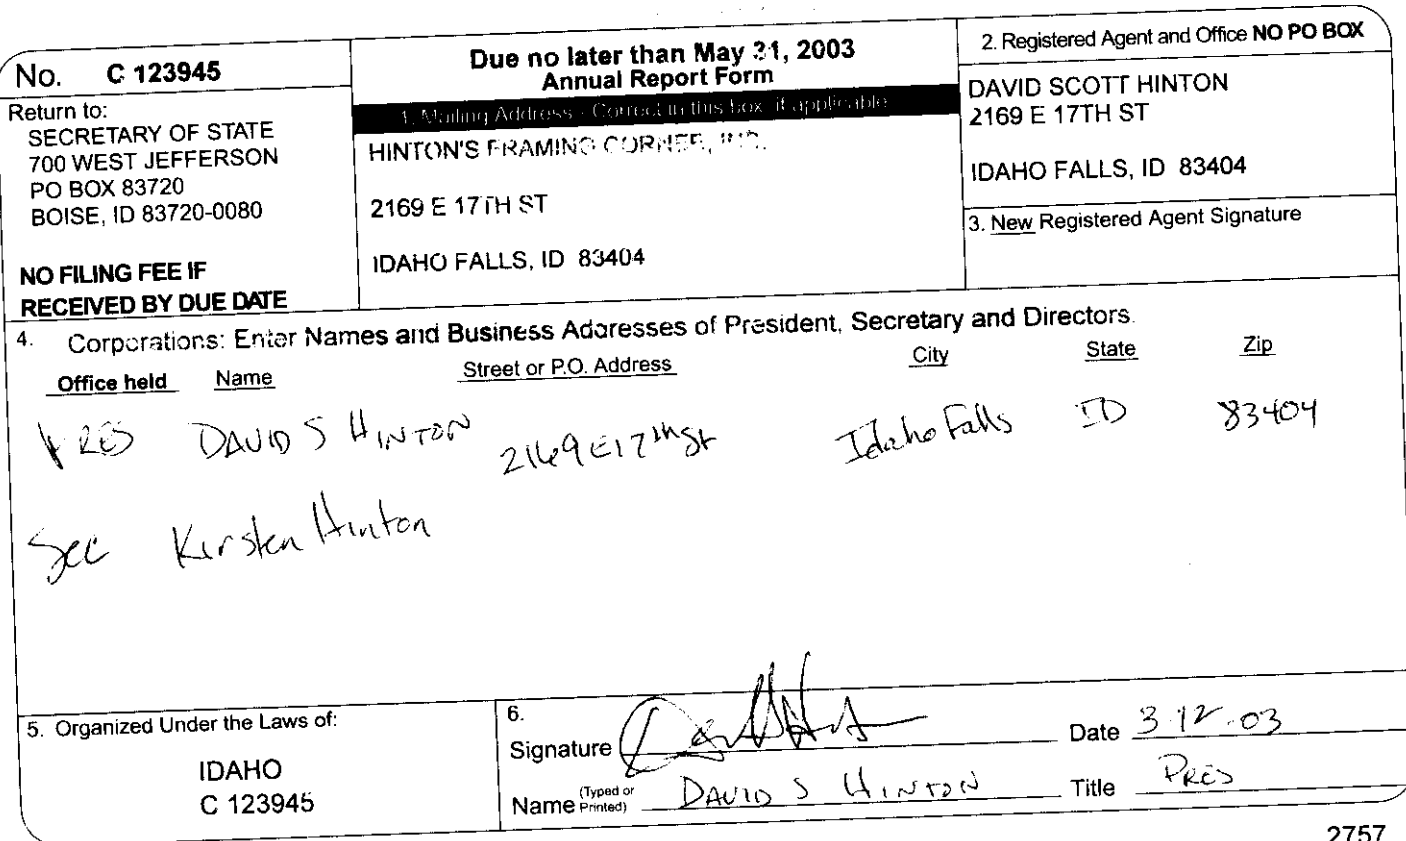 No. C 123945
Return to:
SECRETARY OF STATE
700 WEST JEFFERSON
PO BOX 83720
BOISE, ID 83720-0080
NO FILING FEE IF
RECEIVED BY DUE DATE
Due no later than May 31, 2003
Annual Report Form
1. Mailing Address - Correct in this box, if applicable
HINTON'S FRAMING CORNER, INC.
2169 E 17TH ST
IDAHO FALLS, ID 83404
2. Registered Agent and Office NO PO BOX
DAVID SCOTT HINTON
2169 E 17TH ST
IDAHO FALLS, ID 83404
3. New Registered Agent Signature
4. Corporations: Enter Names and Business Addresses of President, Secretary and Directors.
Office held Name Street or P.O. Address City State Zip
PRES DAVID S HINTON 2169 E 17th St Idaho Falls ID 83404
Sec Kirsten Hinton
5. Organized Under the Laws of:
IDAHO
C 123945
6.
Signature Date 3-12-03
Name (Typed or Printed) DAVID S HINTON Title PRES
2757